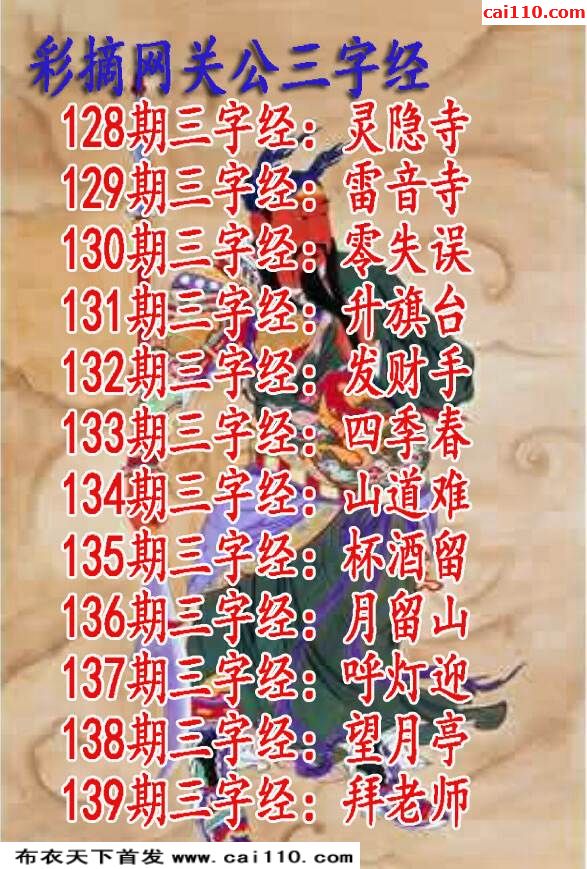 cai110.com
彩摘网关公三字经
128期三字经：灵隐寺
129期三字经：雷音寺
130期三字经：零失误
131期三字经：升旗台
132期三字经：发财手
133期三字经：四季春
134期三字经：山道难
135期三字经：杯酒留
136期三字经：月留山
137期三字经：呼灯迎
138期三字经：望月亭
139期三字经：拜老师
布衣天下首发 www.cai110.com